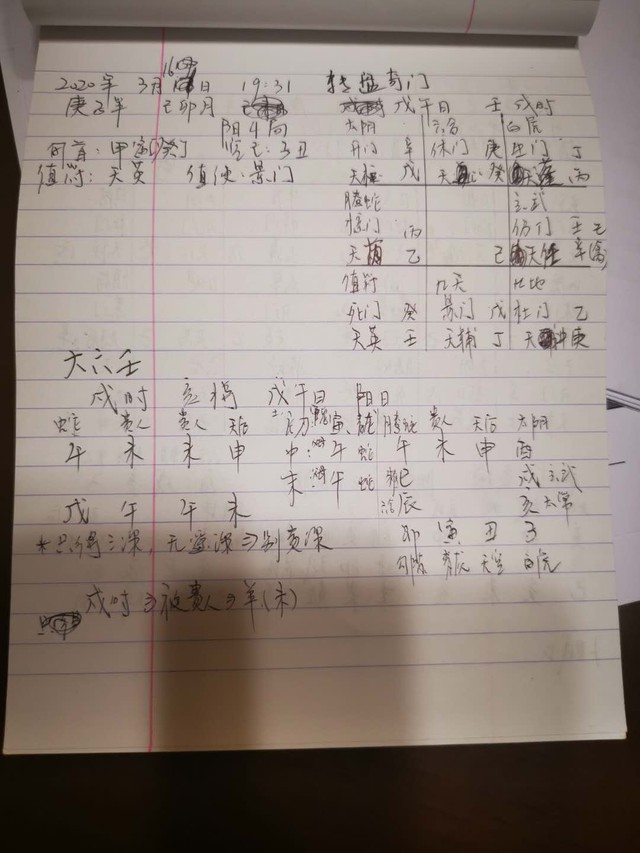 2020年 3月16日 19:31 转盘奇门
庚子年 己卯月 戊午日 壬戌时
阳4局 太阴 六合 白虎
旬首:甲寅[癸] 空亡:子丑 开门 辛 休门 庚 生门 丁
值符:天英 值使:景门 天柱 戊 天心 癸 天蓬 丙
腾蛇 玄武
惊门 丙 伤门 壬
天芮 乙 己 天任 辛
值符 九天 九地
死门 癸 景门 戊 杜门 乙
天英 壬 天辅 丁 天冲 庚
大六壬
戌时 亥将 戊午日 阳日
蛇 贵人 贵人 天后 初: 寅 青龙 腾蛇 贵人 天后 太阴
午 未 未 申 中: 午 蛇 午 未 申 酉
末: 午 蛇 巳 戌 玄武
戊 午 午 未 六合 辰 亥 太常
*只得三课,无遥课⇒别责课 卯 寅 丑 子
勾陈 青龙 天空 白虎
戌时⇒夜贵人⇒羊(未)